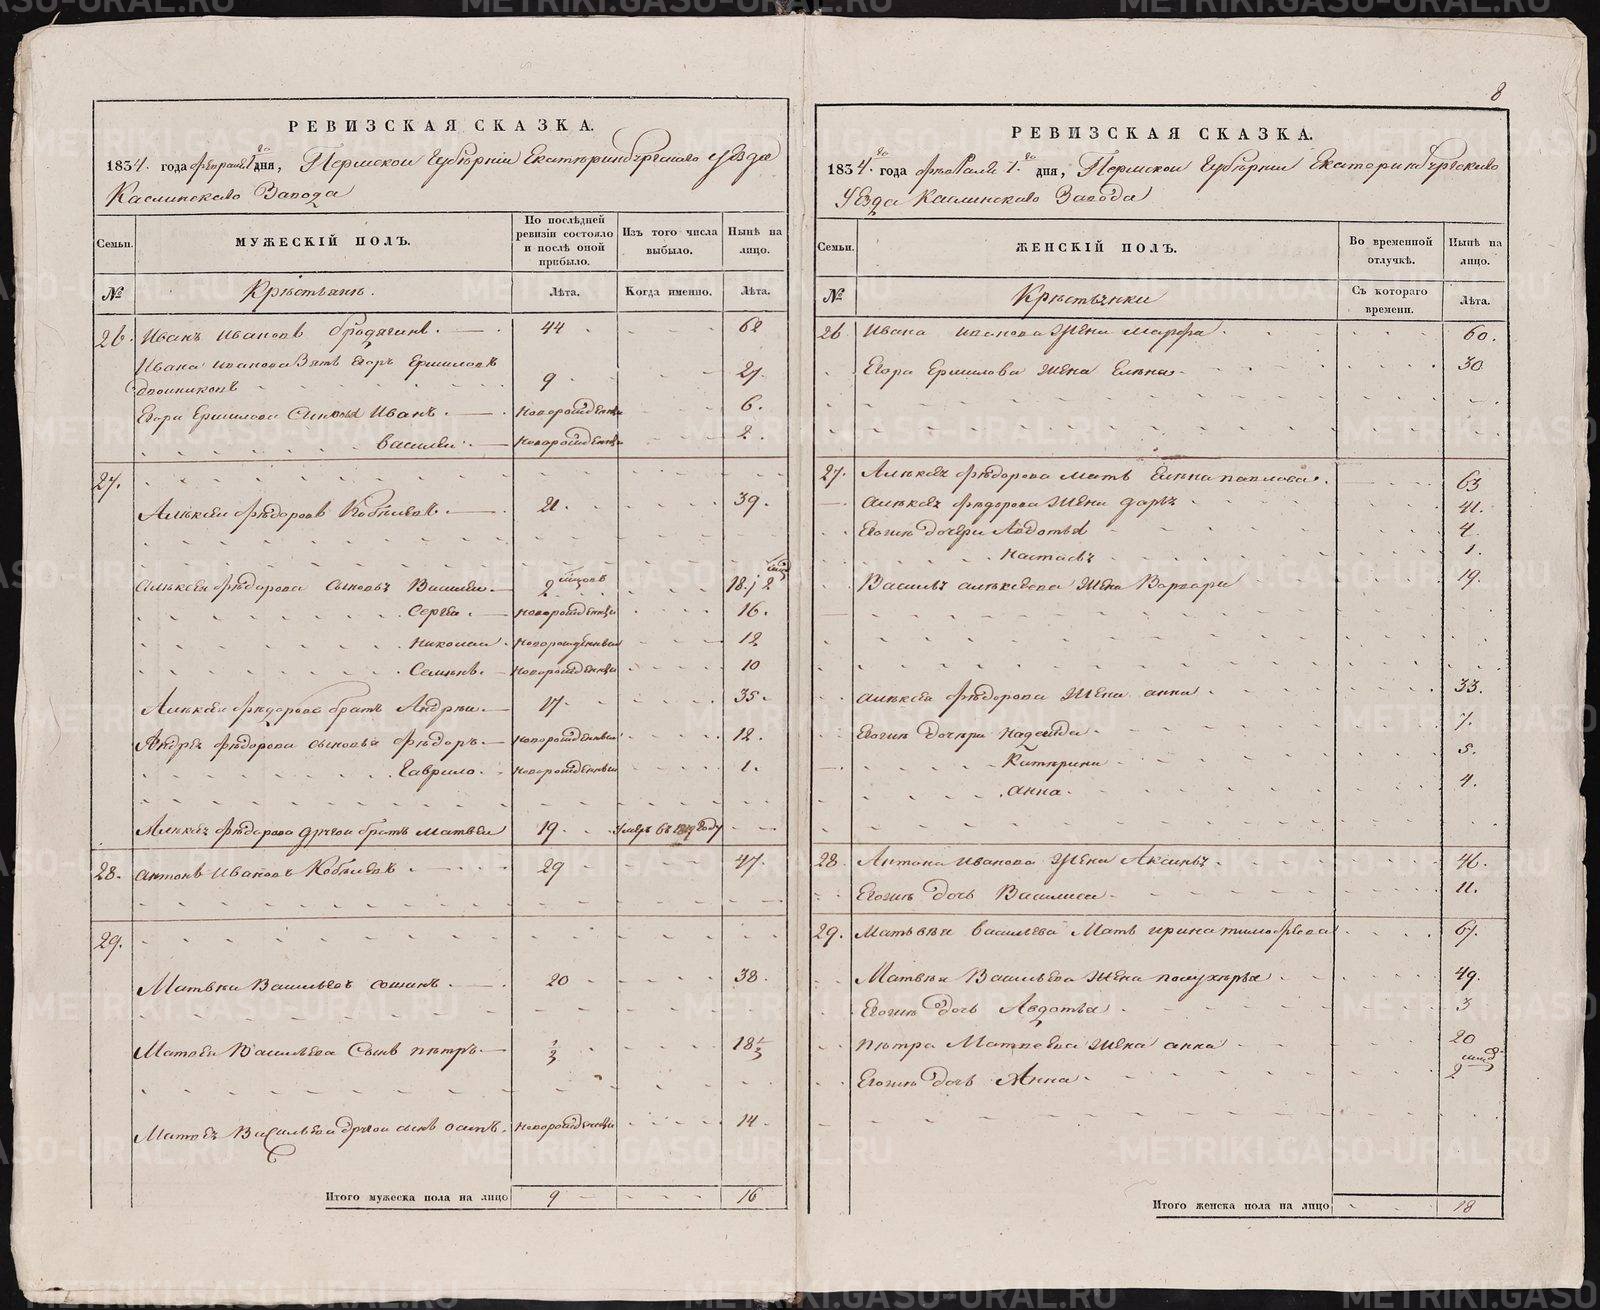 8
РЕВИЗСКАЯ СКАЗКА.
1834. года февраля 1го дня, Пермской Губерніи Екатеринбургскаго уѣзда
Каслинскаго Завода
Семьи. МУЖЕСКІЙ ПОЛЪ. По послѣдней ревизіи состояло и послѣ оной прибыло. Изъ того числа выбыло. Нынѣ на лицо.
№ Крѣстьянѣ. Лѣта. Когда именно. Лѣта.
26. Иванъ Ивановъ 44 62
Ивана Иванова Зять Егоръ Ермиловъ
9 27
Егора Ермилова Сыновья Иванъ новорожденный 6.
Василей новорожденный 2.
27.
Алексей Федоровъ Кобелевъ 21. 39.
Алексея Федорова сыновья Василей 2 18. 2
Сергей новорожденный 16.
Николай новорожденный 12
Семенъ новорожденный 10
Алексея Федорова братъ Андрей 17. 35.
Андрея Федорова сыновья Федоръ новорожденный 12.
Гаврило новорожденный 1.
Алексея Федорова другой братъ Матвей 19 умеръ въ году
28. Антонъ Ивановъ Кобелевъ 29 47.
29.
Матвей Васильевъ 20 38
Матвея Васильева Сынъ Петръ 1/3 18 1/3
Матвея Васильева другой сынъ Осипъ новорожденный 14
Итого мужеска пола на лицо 9 16
РЕВИЗСКАЯ СКАЗКА.
1834го года февраля 1го дня, Пермской Губернии Екатеринбургскаго
Уѣзда Каслинскаго Завода
Семьи. ЖЕНСКІЙ ПОЛЪ. Во временной отлучкѣ. Нынѣ на лицо.
№ Крѣстьянки Съ котораго времени. Лѣта.
26 Ивана Иванова Жена Марфа 60.
Егора Ермилова Жена Елена 30
27. Алексея Федорова Мать Елена Павлова 63
Алексея Федорова Жена Дарья 41.
Егоже дочери Авдотья 4.
Настасья 1.
Василья Алексеева Жена Варвара 19.
Федорова Жена Анна 33.
Егоже дочери Надежда 7.
Катерина 5.
Анна 4.
28. Антона Иванова Жена Аксинья 46.
Егоже дочь Василиса 11.
29. Матвея Васильева Мать Ирина Тимофеева 67.
Матвея Васильева Жена 49.
Егоже дочь Авдотья 3
Петра Матвеева Жена Анна 20
Егоже дочь Анна 2
Итого женска пола на лицо 18
METRIKI.GASO-URAL.RU